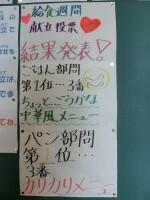 給食週間
献立投票
結果発表!
ごはん部門
第1位…3番
ちょっとごうかな
中華風メニュー
パン部門
第1位…
3番
カリカリメニュー